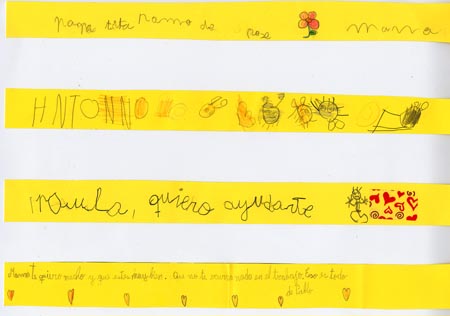 papa tita ramo de rose mama
ANTONIO
quiero ayudarte
Mama te quiero mucho y que estes muy bien. Que no te nada en el trabajo. Eso es todo
de Pablo